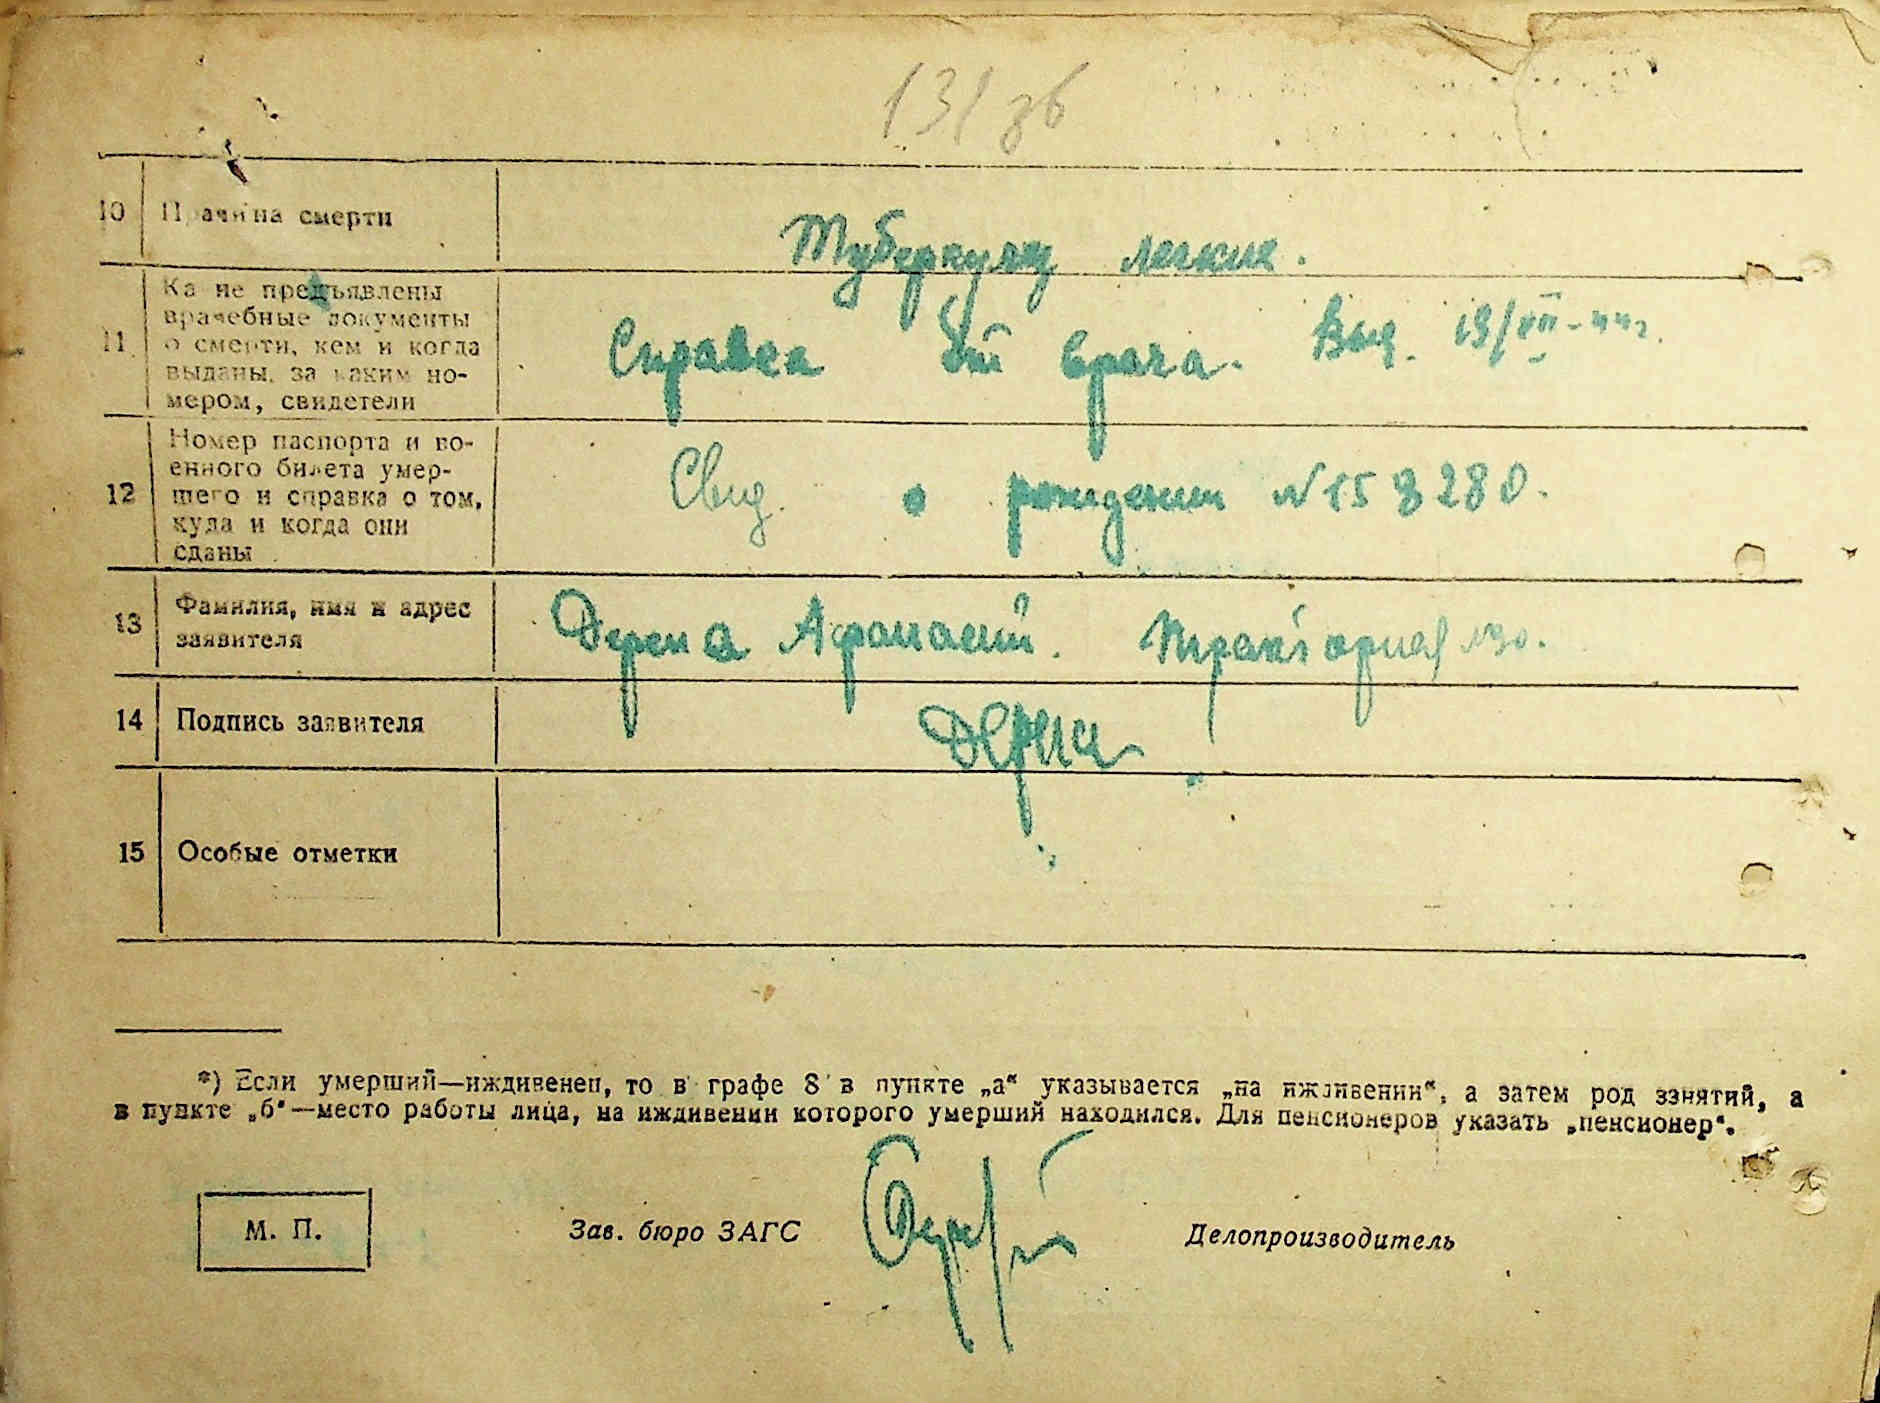 131 зв
10 Причина смерти Туберкулез легких.
11 Какие предъявлены
врачебные документы
о смерти, кем и когда
выданы, за каким но-
мером, свидетели
Справка от врача. Выд. 19/VII-44г.
12 Номер паспорта и во-
енного билета умер-
шего и справка о том,
куда и когда они
сданы
Свид. о рождении N 15 3280.
13 Фамилия, имя и адрес
заявителя
Дерена Афанасий.
14 Подпись заявителя Дерена
15 Особые отметки
*) Если умерший—иждивенец, то в графе 8 в пункте „а“ указывается „на иждивении“, а затем род занятий, а
в пункте „б“—место работы лица, на иждивении которого умерший находился. Для пенсионеров указать „пенсионер“.
М. П. Зав. бюро ЗАГС Делопроизводитель